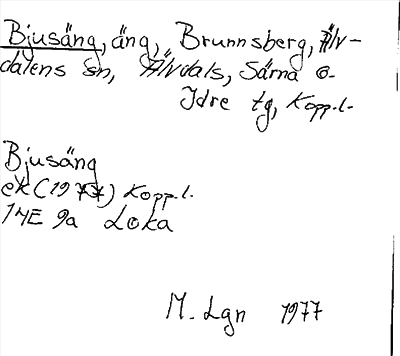 Bjusäng, äng, Brunnsberg, Älv-
dalens sn, Älvdals, Särna o.
Idre tg, Kopp.l.
Bjusäng
ek (1977) Kopp.l.
14E 9a Loka
M. Lgn 1977